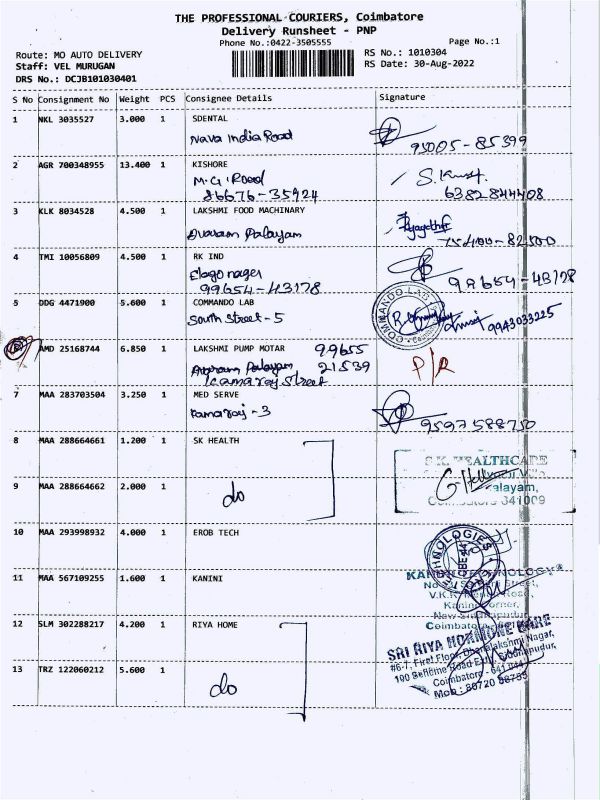 THE PROFESSIONAL COURIERS, Coimbatore
Delivery Runsheet - PNP
Phone No.:0422-3505555
Page No.:1
Route: MO AUTO DELIVERY
Staff: VEL MURUGAN
DRS No.: DCJB101030401
RS No.: 1010304
RS Date: 30-Aug-2022
S No Consignment No Weight PCS Consignee Details Signature
1 NKL 3035527 3.000 1 SDENTAL
Nava India Road 95005-85399
2 AGR 700348955 13.400 1 KISHORE
M.G. Road
86676-35924 6382844408
3 KLK 8034528 4.500 1 LAKSHMI FOOD MACHINARY
Avaram Palayam
4 TMI 10056809 4.500 1 RK IND
Elago nager
99654-43178 99654-43178
5 DDG 4471900 5.600 1 COMMANDO LAB
South Street-5 9943033225
COMMANDO LAB
AMD 25168744 6.850 1 LAKSHMI PUMP MOTAR 99655
Avaram Palayam 21539
Kamaraj Street P/R
7 MAA 283703504 3.250 1 MED SERVE
Kamaraj-3 9597588750
8 MAA 288664661 1.200 1 SK HEALTH
S.K. HEALTHCARE
9 MAA 288664662 2.000 1
do
10 MAA 293998932 4.000 1 EROB TECH
11 MAA 567109255 1.600 1 KANINI
Kanini Corner,
Coimbatore
12 SLM 302288217 4.200 1 RIYA HOME
SRI RIYA HORMONE CARE
13 TRZ 122060212 5.600 1
do